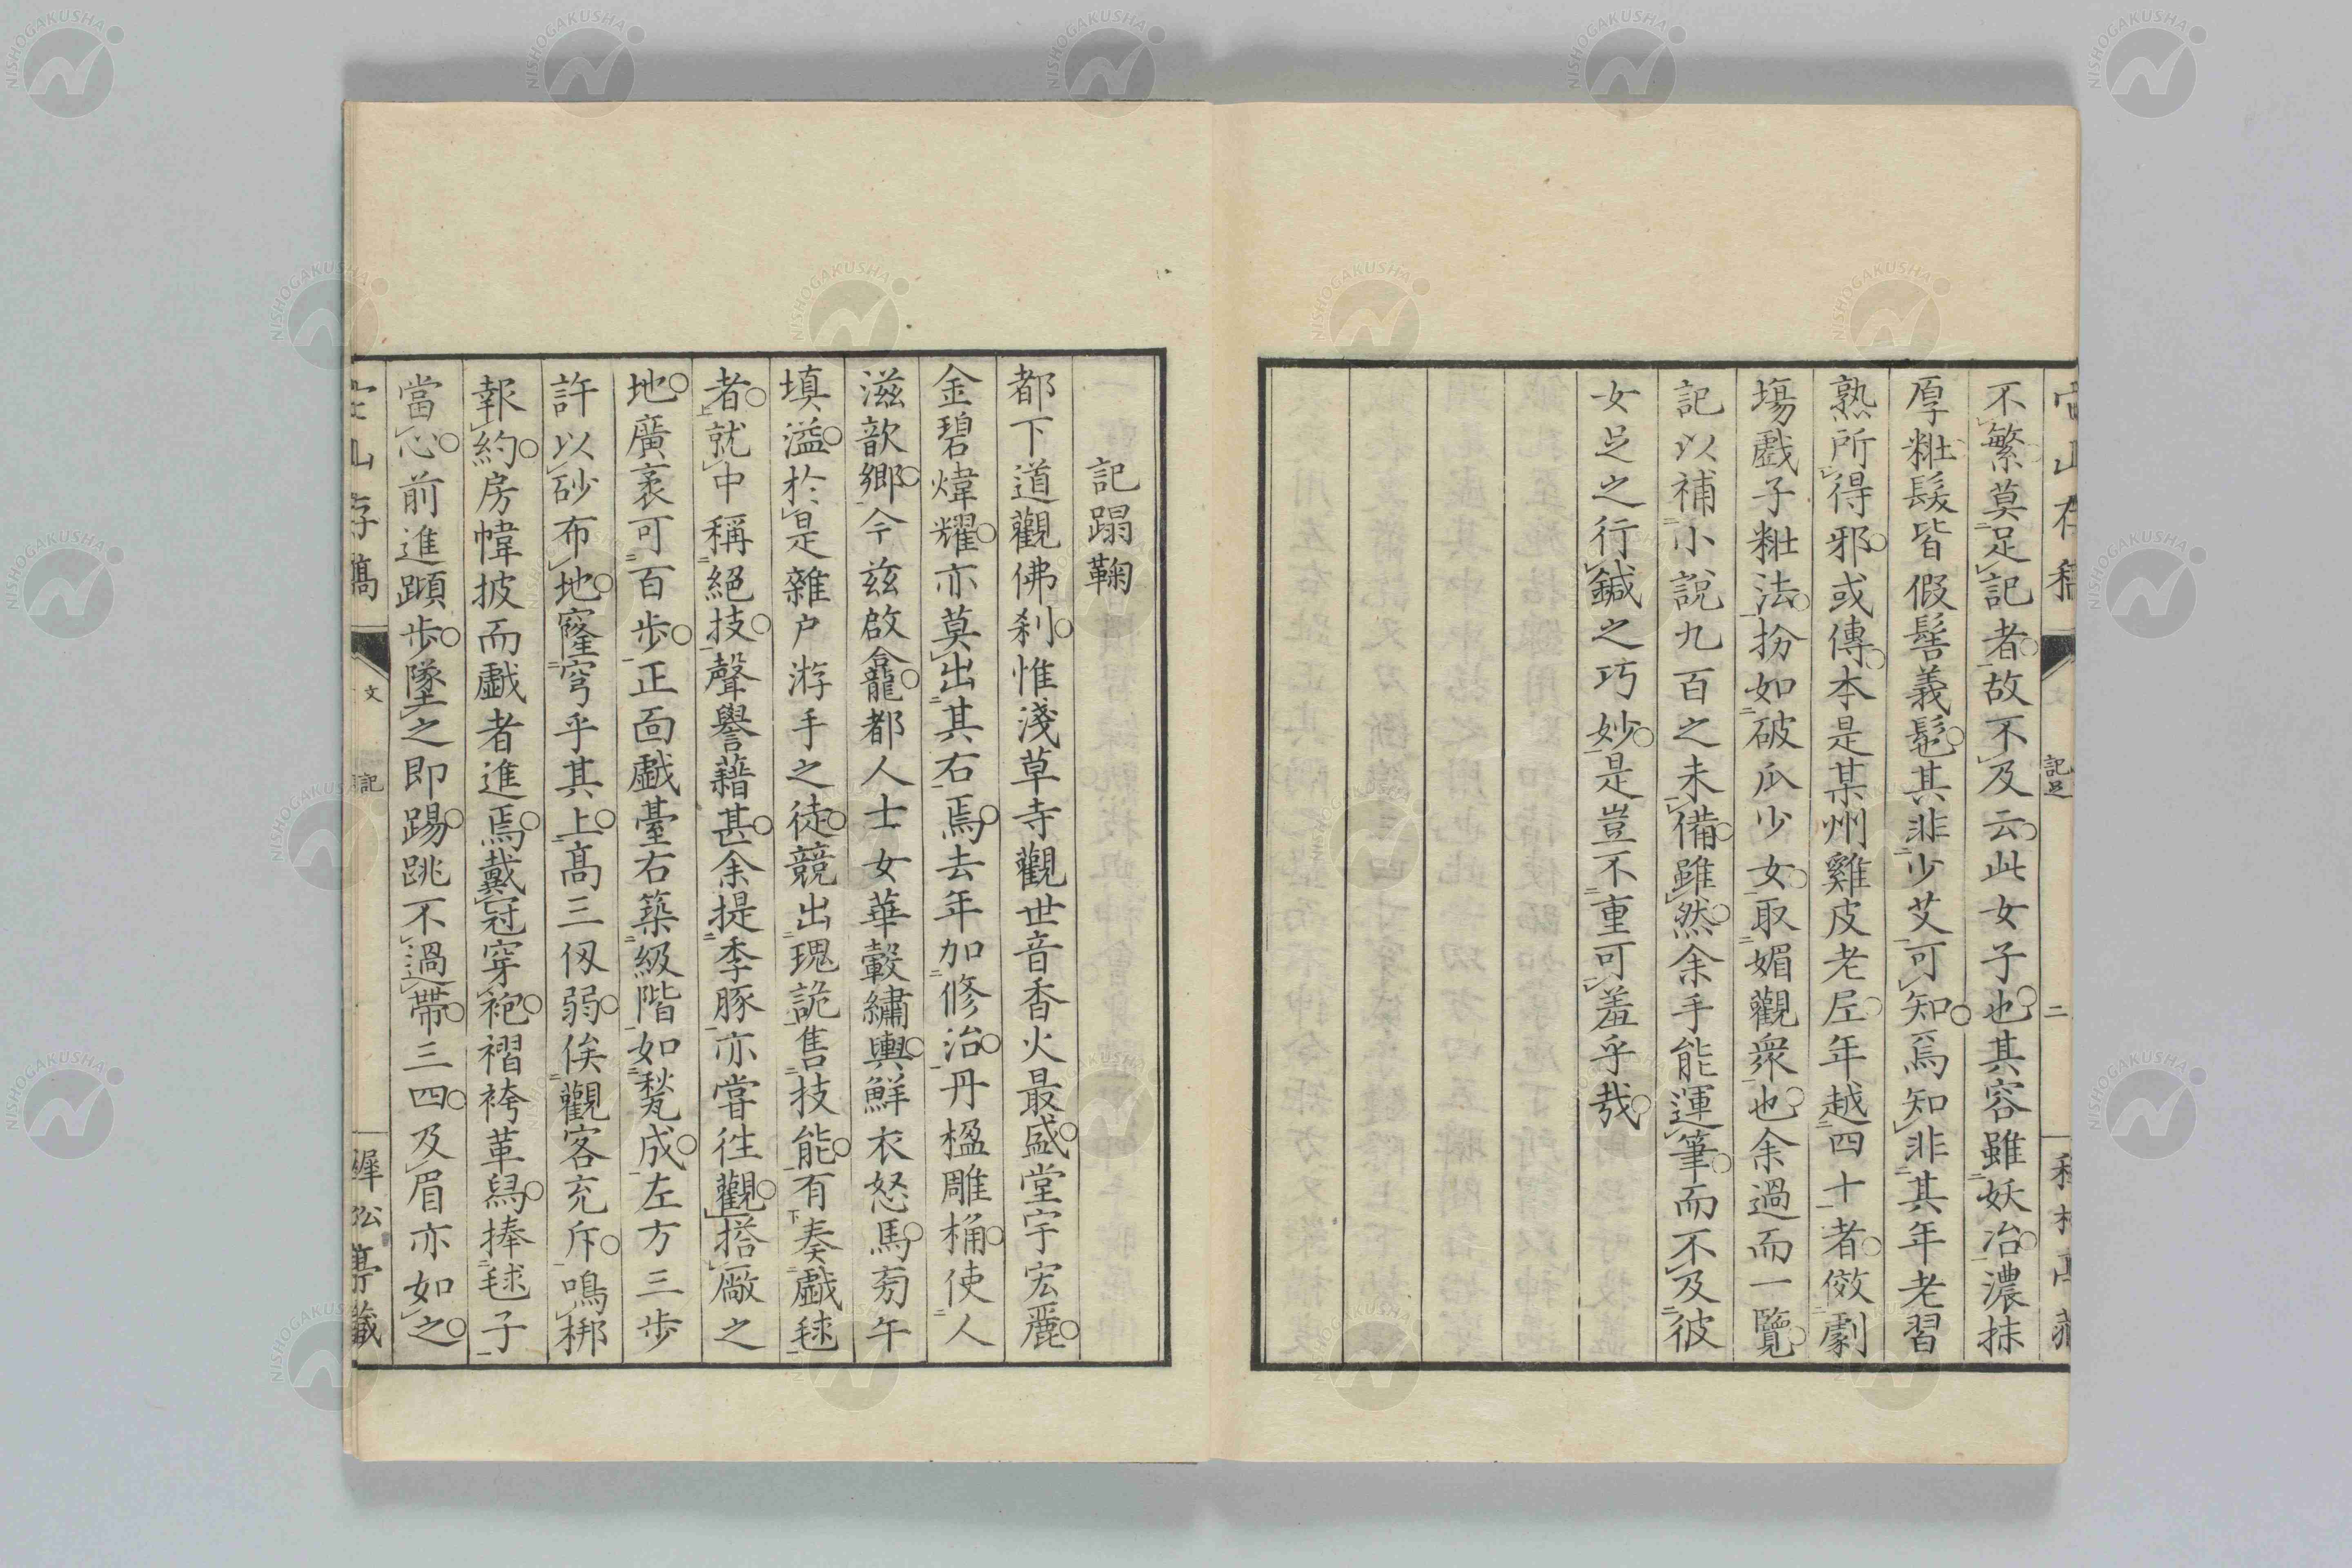 不繁莫足記者故不及云此女子也其容雖妖冶濃抹
厚粧髮皆假髻義髢其非少艾可知焉知非其年老習
熟所得邪或傳本是某州雞皮老𡱈年越四十者倣劇
塲戲子粧法扮如破瓜少女取媚觀衆也余過而一覽
記以補小說九百之未備雖然余手能運筆而不及彼
女足之行鍼之巧妙是豈不重可羞乎哉
記蹋鞠
都下道觀佛刹惟淺草寺觀世音香火最盛堂宇宏麗
金碧煒耀亦莫出其右焉去年加修治丹楹雕桷使人
滋歆鄉今茲啟龕都人士女華轂繡輿鮮衣怒馬旁午
填溢於是雜戶游手之徒競出瑰詭售技能有奏戲毬
者就中稱絕技聲譽藉甚余提季豚亦嘗往觀搭廠之
地廣袤可百步正面戲臺右築級階如甃成左方三步
許以砂布地窿穹乎其上高三仭弱俟觀客充斥鳴梆
報約房幃披而戲者進焉戴冠穿袍褶袴革舃捧毬子
當心前進蹞步墜之即踢跳不過帶三四及眉亦如之
文
記
記
二